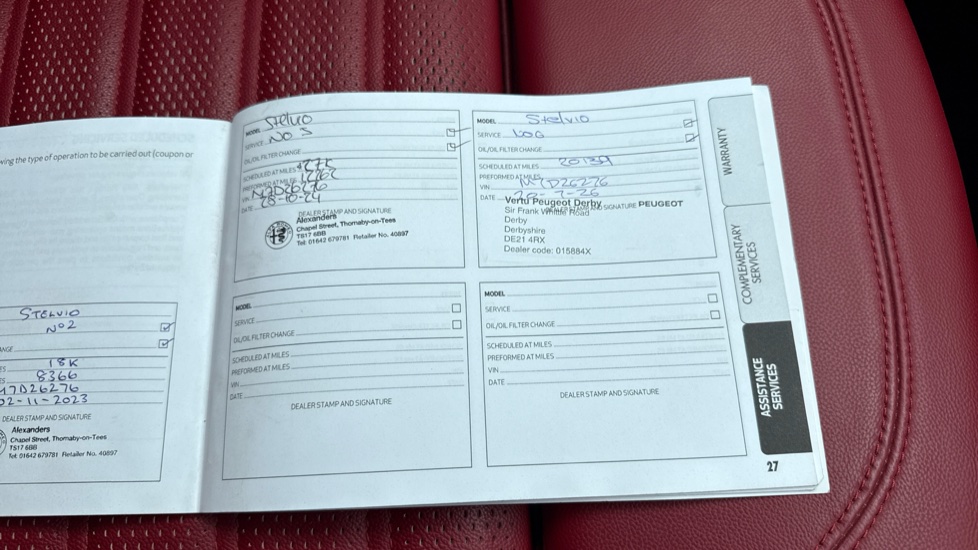 ing the type of operation to be carried out (coupon or
STELVIO
Nº2
NGE
18K
8366
M7D26276
02-11-2023
DEALER STAMP AND SIGNATURE
Alexanders
Chapel Street, Thornaby-on-Tees
TS17 6BB
Tel: 01642 679781 Retailer No. 40897
MODEL Stelvio
SERVICE NO 3
OIL/OIL FILTER CHANGE
SCHEDULED AT MILES 27K
PREFORMED AT MILES
VIN M7D26276
DATE 28-10-24
DEALER STAMP AND SIGNATURE
Alexanders
Chapel Street, Thornaby-on-Tees
TS17 6BB
Tel: 01642 679781 Retailer No. 40897
MODEL Stelvio
SERVICE
OIL/OIL FILTER CHANGE
SCHEDULED AT MILES
PREFORMED AT MILES
VIN M7D26276
DATE
DEALER STAMP AND SIGNATURE
Vertu Peugeot Derby PEUGEOT
Sir Frank Whittle Road
Derby
Derbyshire
DE21 4RX
Dealer code: 015884X
MODEL
SERVICE
OIL/OIL FILTER CHANGE
SCHEDULED AT MILES
PREFORMED AT MILES
VIN
DATE
DEALER STAMP AND SIGNATURE
MODEL
SERVICE
OIL/OIL FILTER CHANGE
SCHEDULED AT MILES
PREFORMED AT MILES
VIN
DATE
DEALER STAMP AND SIGNATURE
WARRANTY
COMPLEMENTARY
SERVICES
ASSISTANCE
SERVICES
27